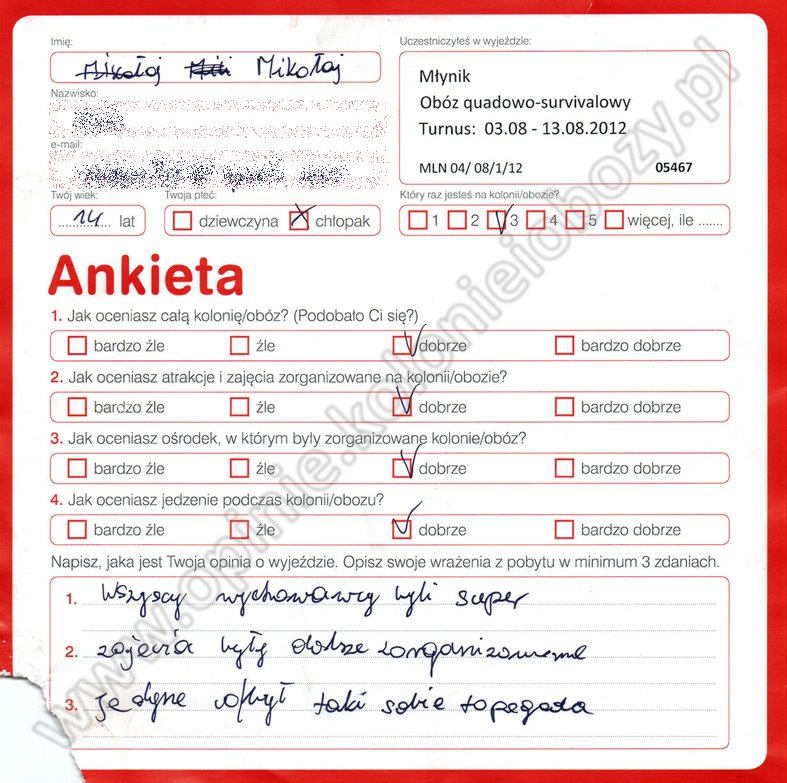 Imię:
Mikołaj Miki Mikołaj
Nazwisko:
e-mail:
Twój wiek:
14 lat
Twoja płeć:
dziewczyna chłopak
Uczestniczyłeś w wyjeździe:
Młynik
Obóz quadowo-survivalowy
Turnus: 03.08 - 13.08.2012
MLN 04/ 08/1/12 05467
Który raz jesteś na kolonii/obozie?
1 2 3 4 5 więcej, ile .......
Ankieta
1. Jak oceniasz całą kolonię/obóz? (Podobało Ci się?)
bardzo źle źle dobrze bardzo dobrze
2. Jak oceniasz atrakcje i zajęcia zorganizowane na kolonii/obozie?
bardzo źle źle dobrze bardzo dobrze
3. Jak oceniasz ośrodek, w którym były zorganizowane kolonie/obóz?
bardzo źle źle dobrze bardzo dobrze
4. Jak oceniasz jedzenie podczas kolonii/obozu?
bardzo źle źle dobrze bardzo dobrze
Napisz, jaka jest Twoja opinia o wyjeździe. Opisz swoje wrażenia z pobytu w minimum 3 zdaniach.
1. Wszyscy wychowawcy byli super
2. zajęcia były dobrze zorganizowane
3. jedyne co/był taki sobie to pogoda
www.opinie.kolonieiobozy.pl